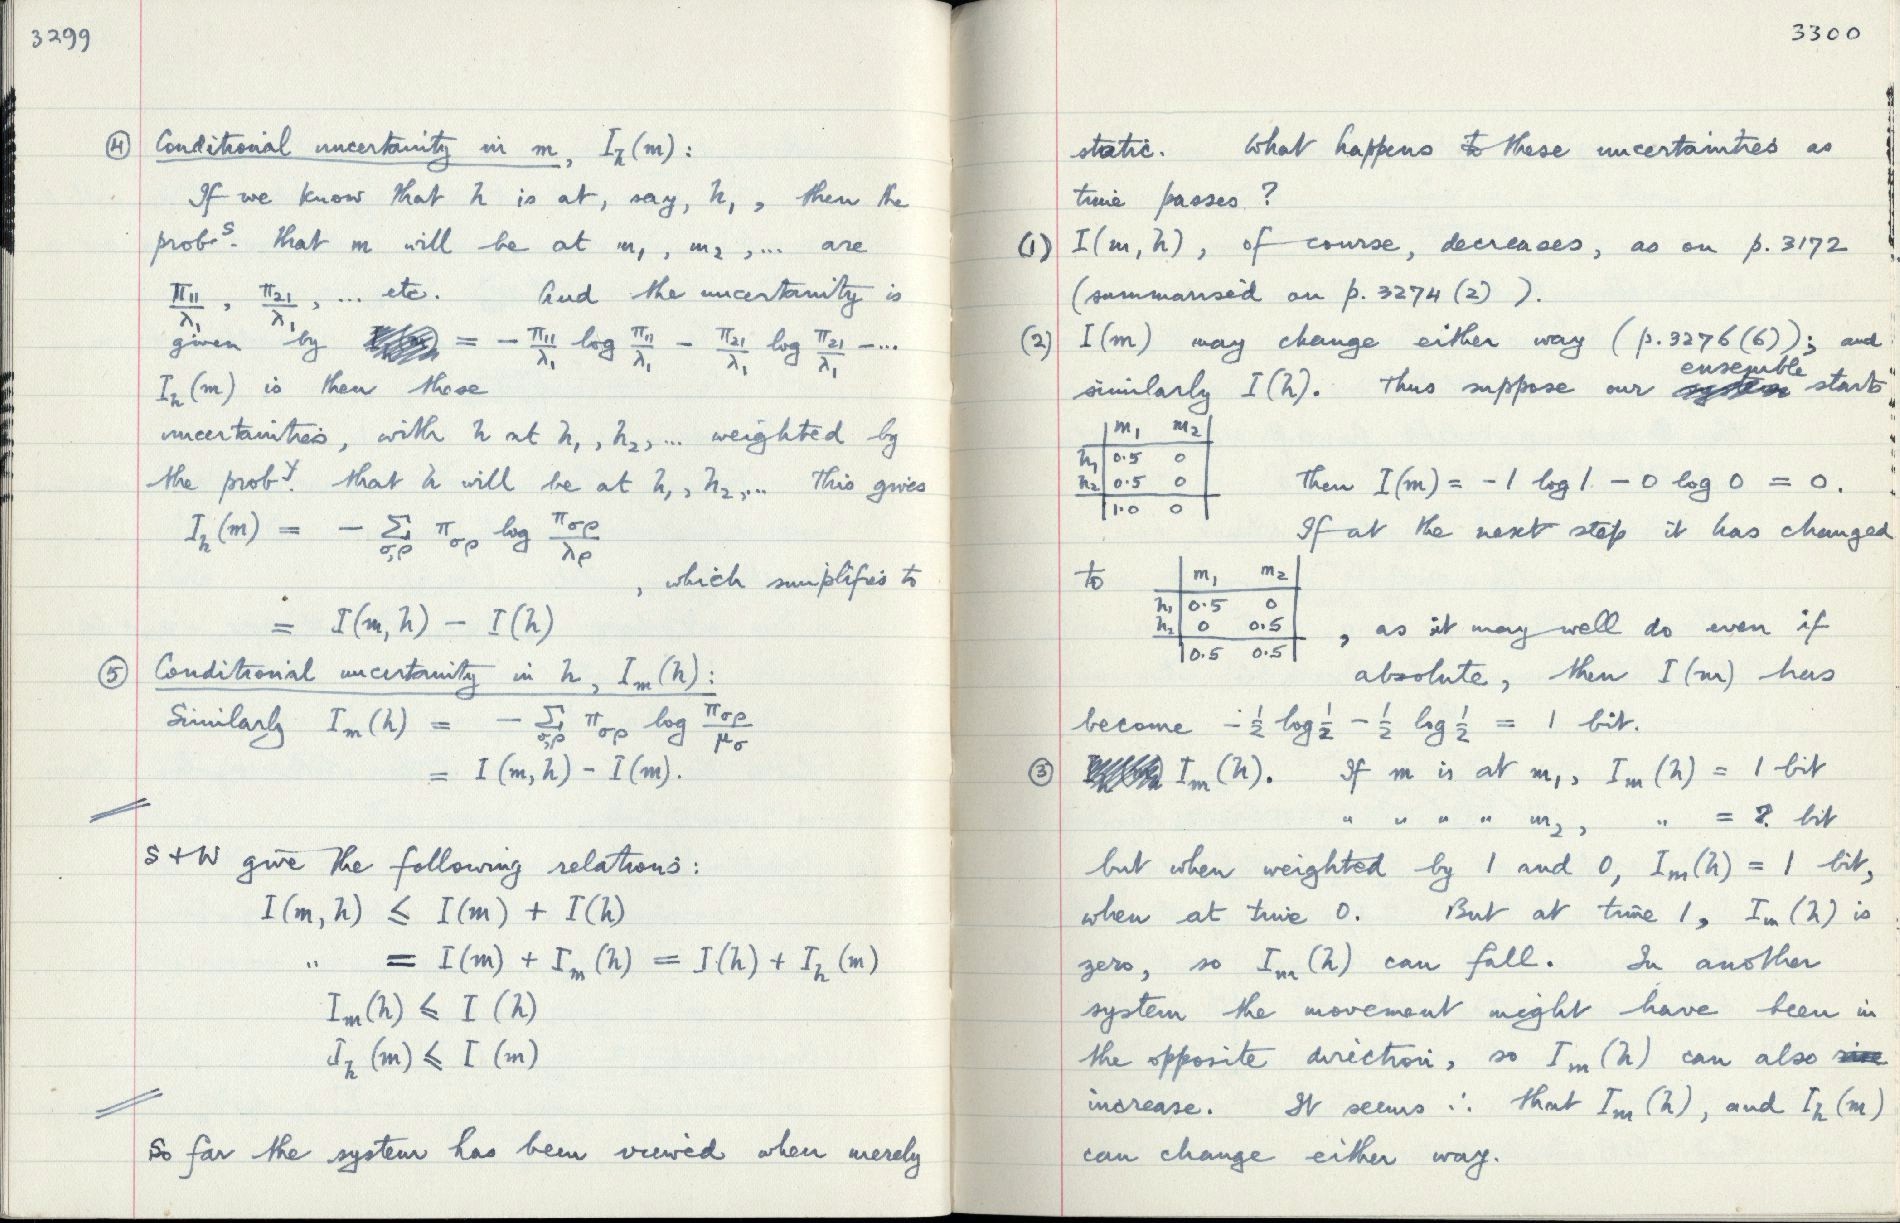 3299
④ Conditional uncertainty in m, I_h(m):
If we know that h is at, say, h₁, then the
probˢ. that m will be at m₁, m₂, ... are
π₁₁/λ₁, π₂₁/λ₁, ... etc. And the uncertainty is
given by = − π₁₁/λ₁ log π₁₁/λ₁ − π₂₁/λ₁ log π₂₁/λ₁ − ...
I_h(m) is then these
uncertainties, with h at h₁, h₂, ... weighted by
the probʸ. that h will be at h₁, h₂, ... This gives
I_h(m) = − Σ_{σ,ρ} π_{σρ} log π_{σρ}/λ_ρ
, which simplifies to
= I(m,h) − I(h)
⑤ Conditional uncertainty in h, I_m(h):
Similarly I_m(h) = − Σ_{σ,ρ} π_{σρ} log π_{σρ}/μ_σ
= I(m,h) − I(m).
S + W give the following relations:
I(m,h) ≤ I(m) + I(h)
" = I(m) + I_m(h) = I(h) + I_h(m)
I_m(h) ≤ I(h)
I_h(m) ≤ I(m)
So far the system has been viewed when merely
3300
static. What happens to these uncertainties as
time passes?
(1) I(m,h), of course, decreases, as on p.3172
(summarised on p.3274(2)).
(2) I(m) may change either way (p.3276(6)); and
similarly I(h). Thus suppose our ensemble starts
m₁ m₂
h₁ 0.5 0
h₂ 0.5 0
1.0 0
Then I(m) = −1 log 1 − 0 log 0 = 0.
If at the next step it has changed
to
m₁ m₂
h₁ 0.5 0
h₂ 0 0.5
0.5 0.5
, as it may well do even if
absolute, then I(m) has
become −½ log ½ − ½ log ½ = 1 bit.
③ I_m(h). If m is at m₁, I_m(h) = 1 bit
" " " " m₂, " = ? bit
but when weighted by 1 and 0, I_m(h) = 1 bit,
when at time 0. But at time 1, I_m(h) is
zero, so I_m(h) can fall. In another
system the movement might have been in
the opposite direction, so I_m(h) can also
increase. It seems ∴ that I_m(h), and I_h(m)
can change either way.